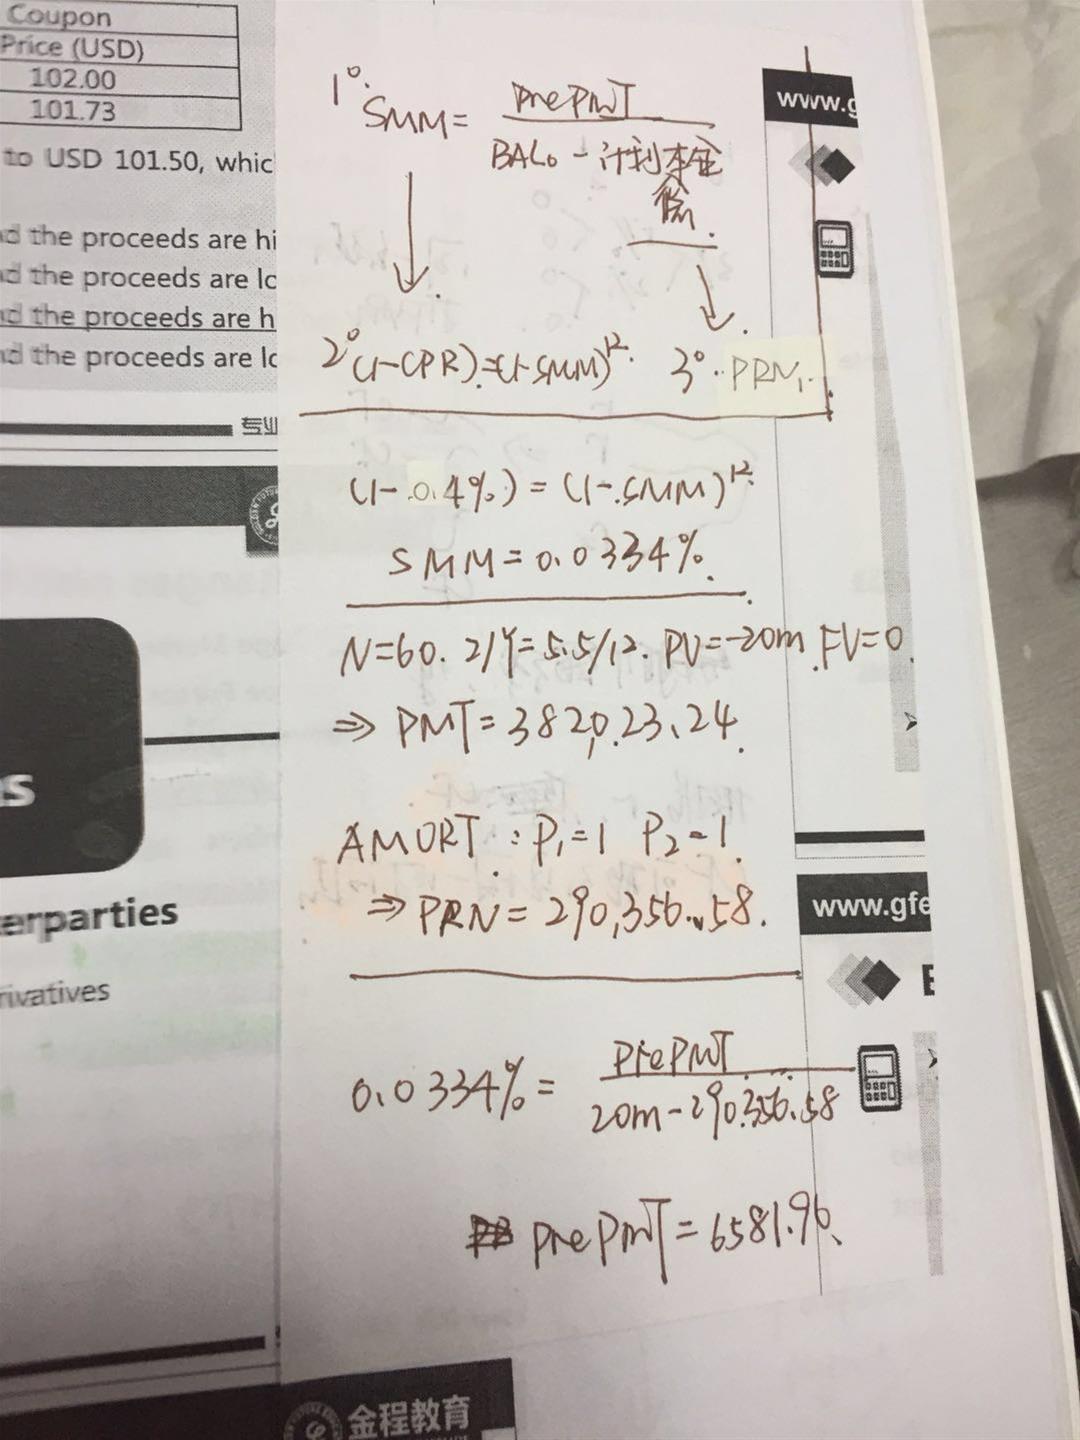 Coupon
Price (USD)
102.00
101.73
to USD 101.50, whic
nd the proceeds are hi
nd the proceeds are lo
nd the proceeds are h
nd the proceeds are lo
专业
s
erparties
rivatives
1°. SMM = PrePMT
BAL₀ - 计划本金
2° (1-CPR) = (1-SMM)¹² 3°. PRN₁.
(1-0.4%) = (1-SMM)¹²
SMM = 0.0334%.
N=60. I/Y=5.5/12. PV=-20m. FV=0.
⇒ PMT = 382,023.24.
AMORT: P₁=1 P₂=1.
⇒ PRN = 290,356.58.
0.0334% = PrePMT
20m-290.356.58
PrePMT = 6581.96.
www.g
www.gfe
E
金程教育